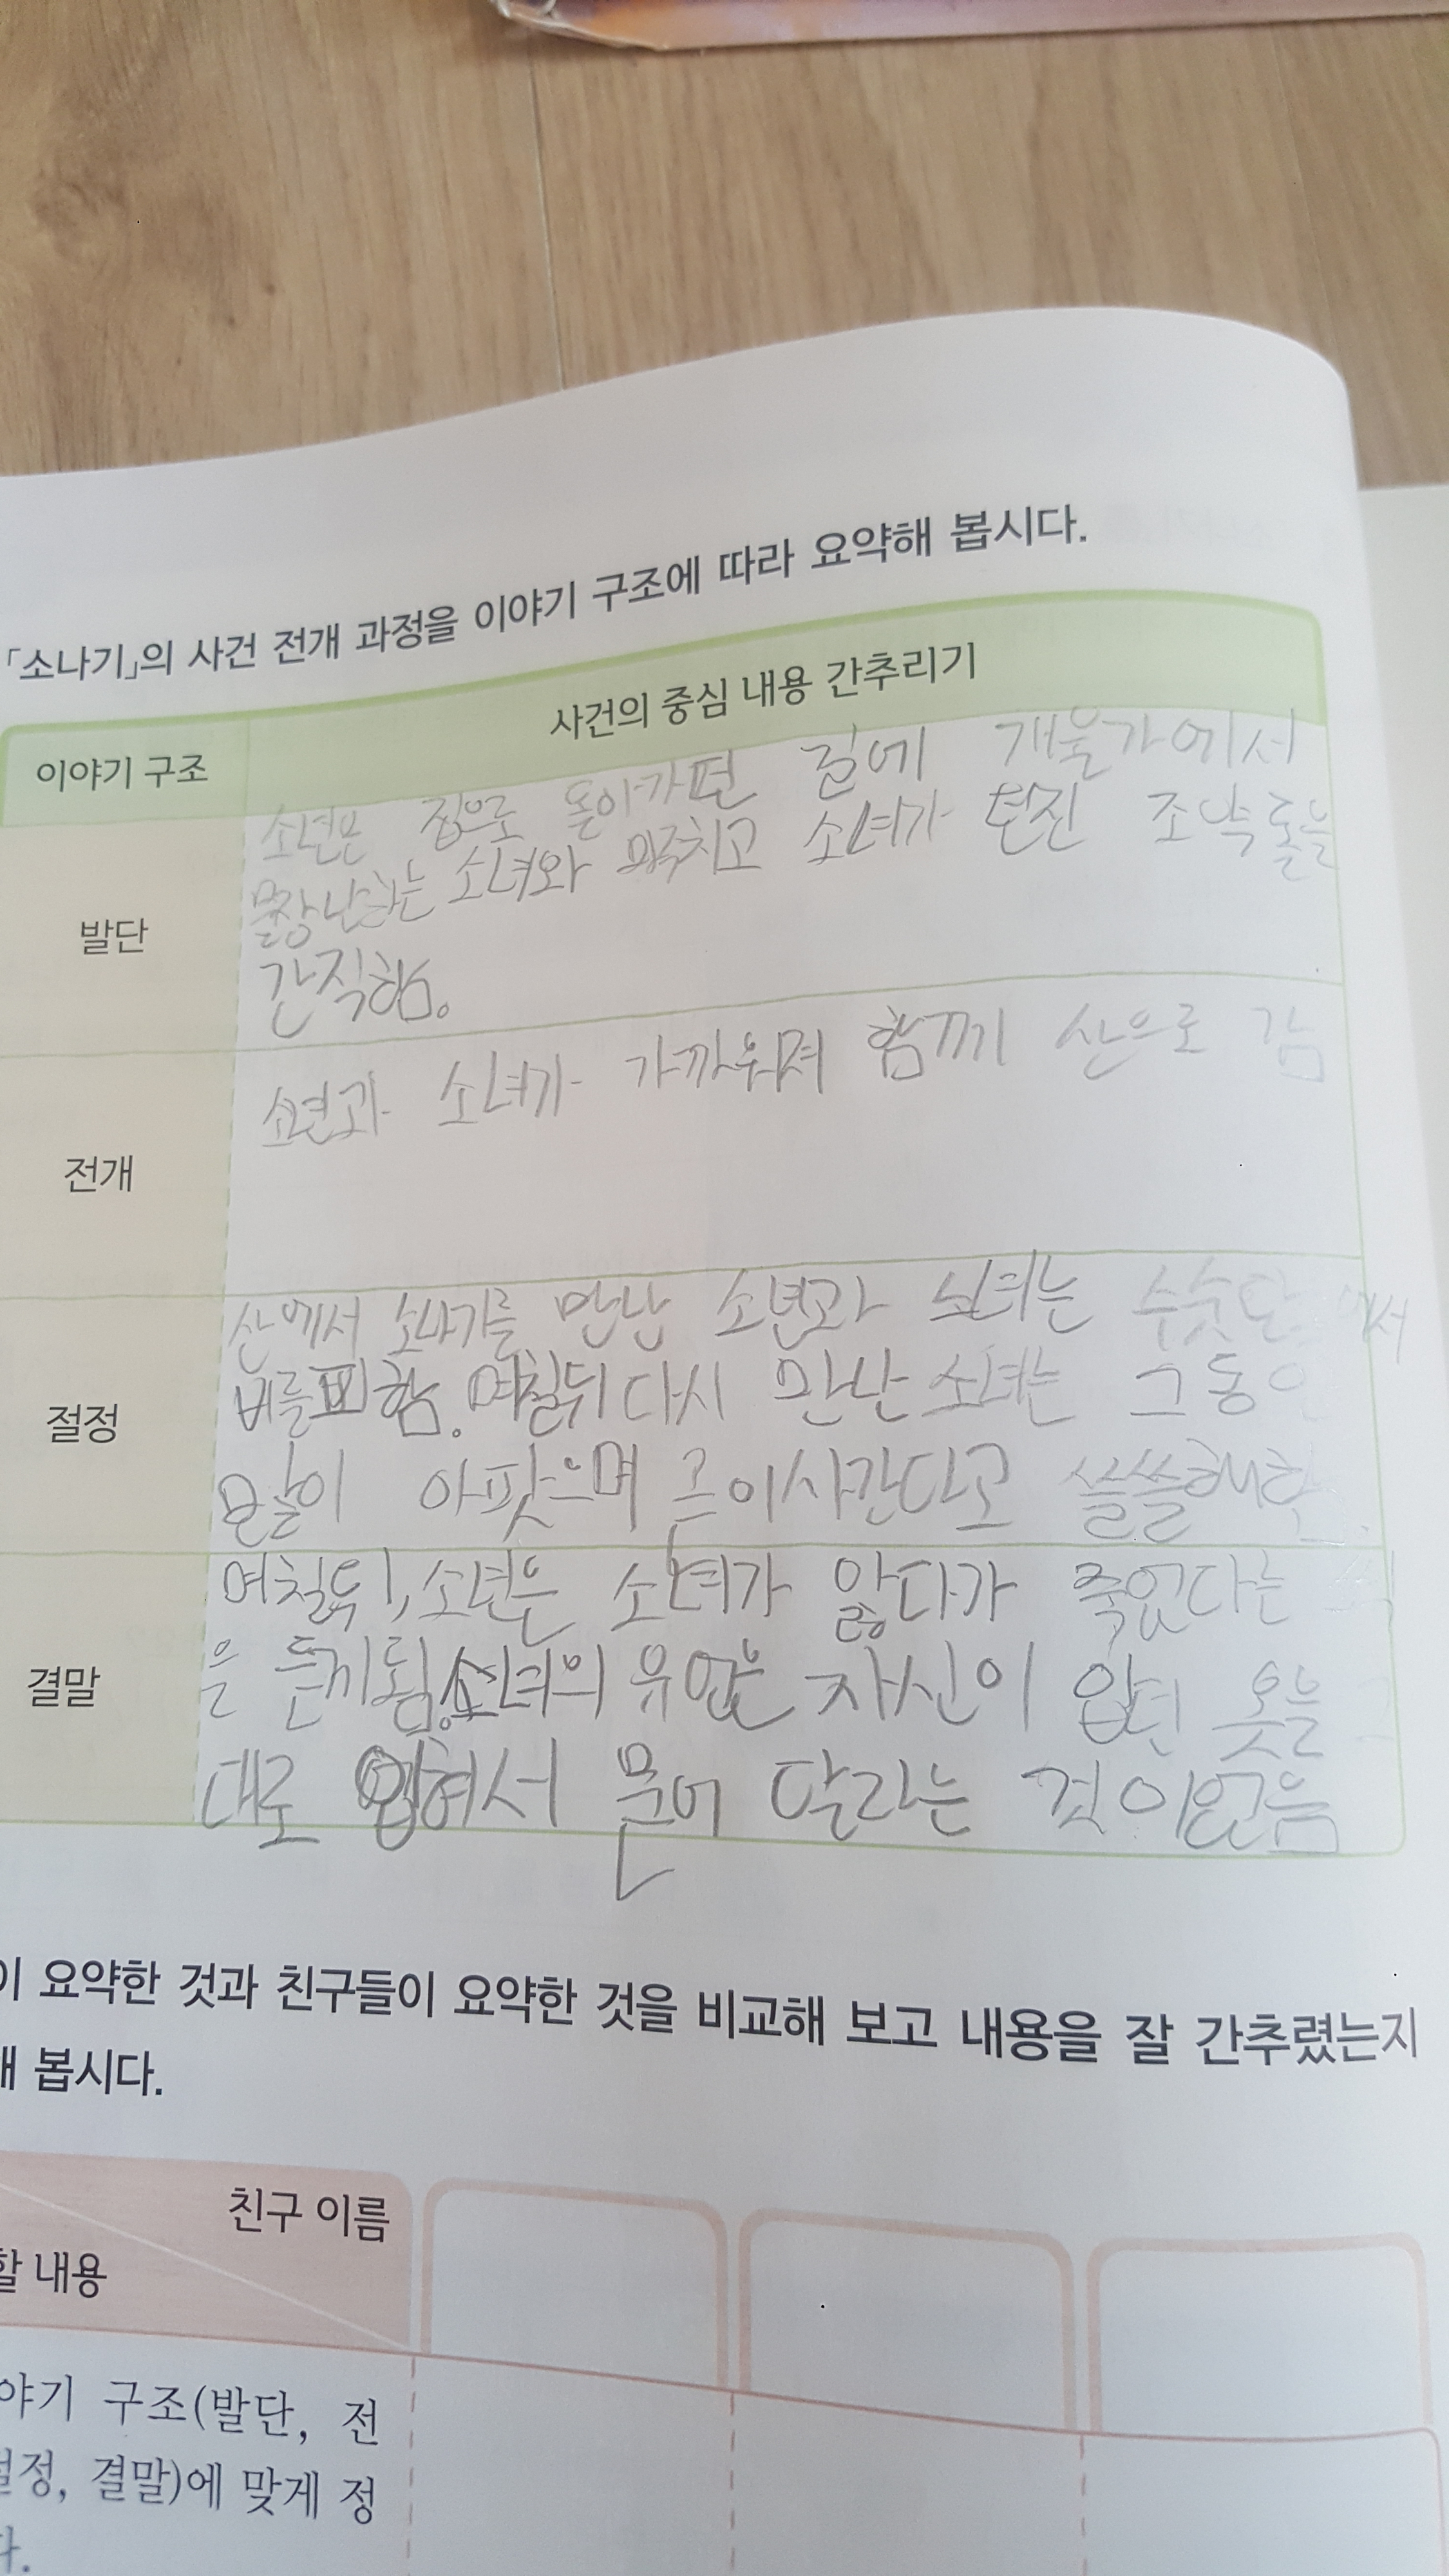 「소나기」의 사건 전개 과정을 이야기 구조에 따라 요약해 봅시다.
이야기 구조
사건의 중심 내용 간추리기
발단
소년은 집으로 돌아가던 길에 개울가에서
물장난하는 소녀와 마주치고 소녀가 던진 조약돌을
간직함.
전개
소년과 소녀가 가까워져 함께 산으로 감
절정
산에서 소나기를 만난 소년과 소녀는 수숫단에서
비를 피함. 며칠뒤 다시 만난 소녀는 그동안
많이 아팟으며 곧 이사간다고 쓸쓸해함.
결말
며칠뒤, 소년은 소녀가 앓다가 죽었다는
을 듣게됨. 소녀의 유언은 자신이 입던 옷을 그
대로 입혀서 묻어 달라는 것이었음
이 요약한 것과 친구들이 요약한 것을 비교해 보고 내용을 잘 간추렸는지
해 봅시다.
친구 이름
할 내용
야기 구조(발단, 전
절정, 결말)에 맞게 정
다.